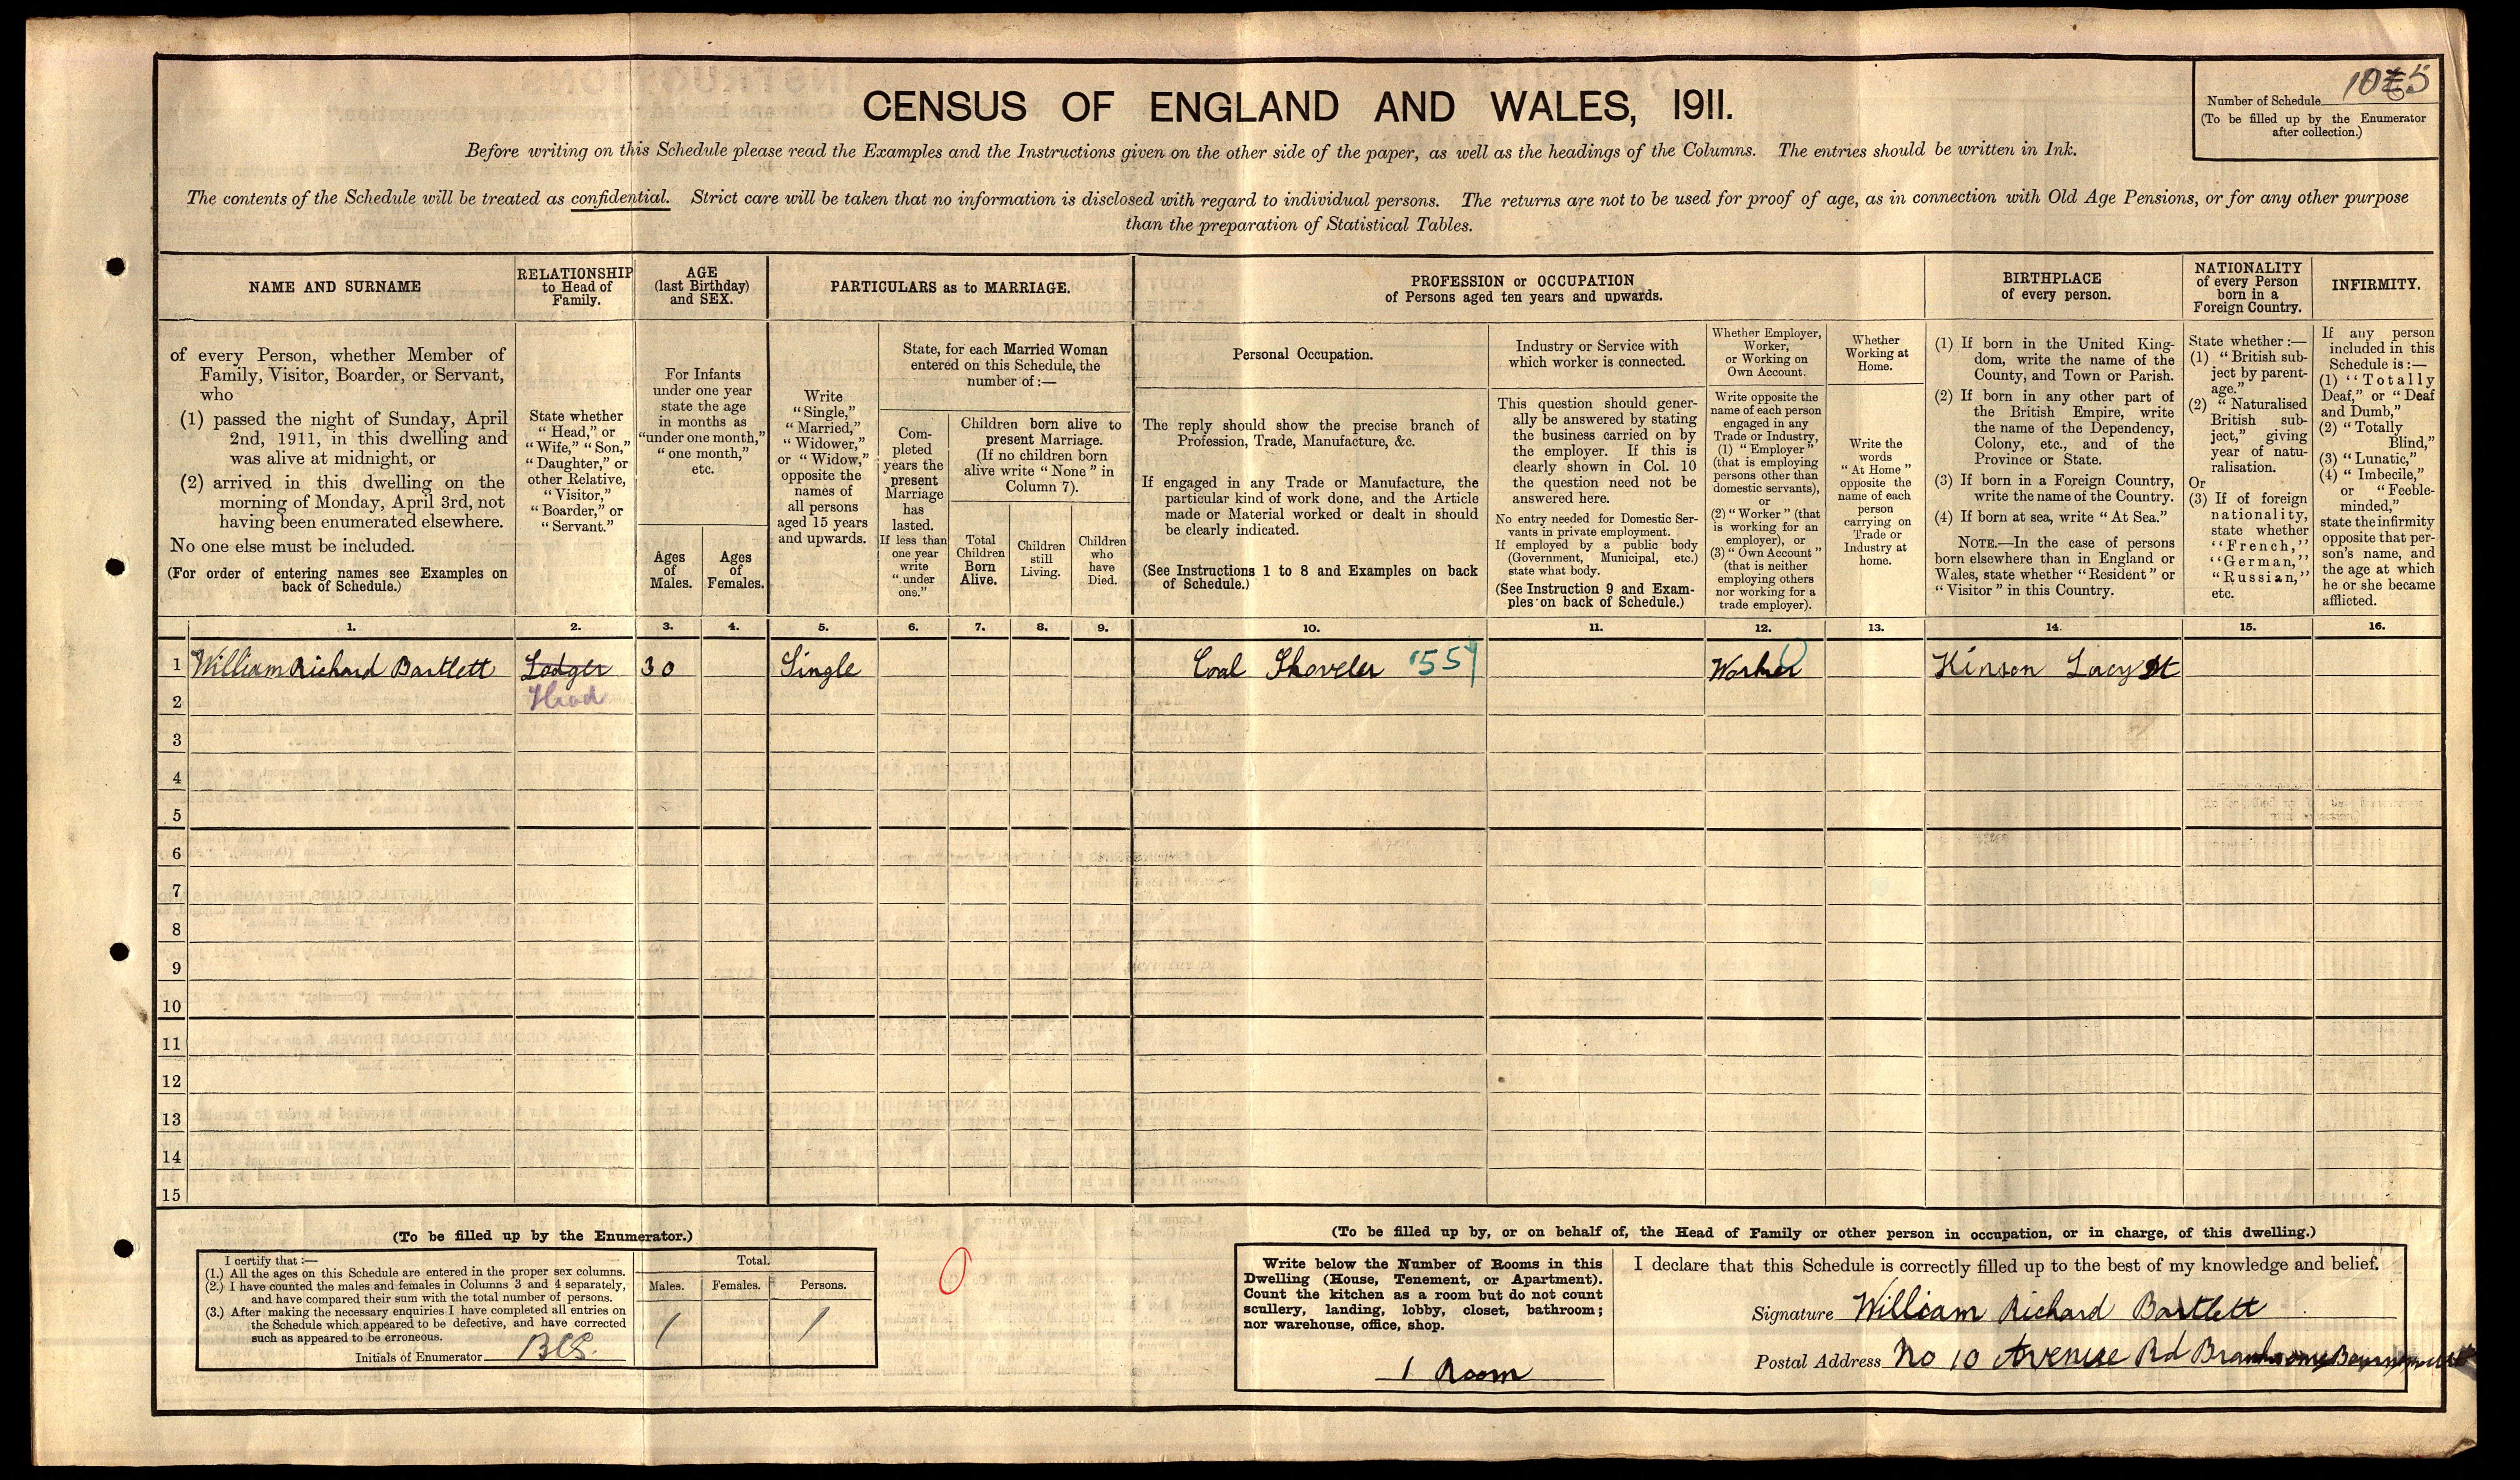 CENSUS OF ENGLAND AND WALES, 1911.
Number of Schedule
(To be filled up by the Enumerator
after collection.)
Before writing on this Schedule please read the Examples and the Instructions given on the other side of the paper, as well as the headings of the Columns. The entries should be written in Ink.
The contents of the Schedule will be treated as confidential. Strict care will be taken that no information is disclosed with regard to individual persons. The returns are not to be used for proof of age, as in connection with Old Age Pensions, or for any other purpose
than the preparation of Statistical Tables.
NAME AND SURNAME
of every Person, whether Member of
Family, Visitor, Boarder, or Servant,
who
(1) passed the night of Sunday, April
2nd, 1911, in this dwelling and
was alive at midnight, or
(2) arrived in this dwelling on the
morning of Monday, April 3rd, not
having been enumerated elsewhere.
No one else must be included.
(For order of entering names see Examples on
back of Schedule.)
RELATIONSHIP
to Head of
Family.
State whether
"Head," or
"Wife," "Son,"
"Daughter," or
other Relative,
"Visitor,"
"Boarder," or
"Servant."
AGE
(last Birthday)
and SEX.
For Infants
under one year
state the age
in months as
"under one month,"
"one month,"
etc.
Ages
of
Males.
Ages
of
Females.
PARTICULARS as to MARRIAGE.
Write
"Single,"
"Married,"
"Widower,"
or "Widow,"
opposite the
names of
all persons
aged 15 years
and upwards.
State, for each Married Woman
entered on this Schedule, the
number of :—
Com-
pleted
years the
present
Marriage
has
lasted.
If less than
one year
write
"under
one."
Children born alive to
present Marriage.
(If no children born
alive write "None" in
Column 7).
Total
Children
Born
Alive.
Children
still
Living.
Children
who
have
Died.
PROFESSION or OCCUPATION
of Persons aged ten years and upwards.
Personal Occupation.
The reply should show the precise branch of
Profession, Trade, Manufacture, &c.
If engaged in any Trade or Manufacture, the
particular kind of work done, and the Article
made or Material worked or dealt in should
be clearly indicated.
(See Instructions 1 to 8 and Examples on back
of Schedule.)
Industry or Service with
which worker is connected.
This question should gener-
ally be answered by stating
the business carried on by
the employer. If this is
clearly shown in Col. 10
the question need not be
answered here.
No entry needed for Domestic Ser-
vants in private employment.
If employed by a public body
(Government, Municipal, etc.)
state what body.
(See Instruction 9 and Exam-
ples on back of Schedule.)
Whether Employer,
Worker,
or Working on
Own Account.
Write opposite the
name of each person
engaged in any
Trade or Industry,
(1) "Employer"
(that is employing
persons other than
domestic servants),
or
(2) "Worker" (that
is working for an
employer), or
(3) "Own Account"
(that is neither
employing others
nor working for a
trade employer).
Whether
Working at
Home.
Write the
words
"At Home"
opposite the
name of each
person
carrying on
Trade or
Industry at
home.
BIRTHPLACE
of every person.
(1) If born in the United King-
dom, write the name of the
County, and Town or Parish.
(2) If born in any other part of
the British Empire, write
the name of the Dependency,
Colony, etc., and of the
Province or State.
(3) If born in a Foreign Country,
write the name of the Country.
(4) If born at sea, write "At Sea."
NOTE.—In the case of persons
born elsewhere than in England or
Wales, state whether "Resident" or
"Visitor" in this Country.
NATIONALITY
of every Person
born in a
Foreign Country.
State whether :—
(1) "British sub-
ject by parent-
age."
(2) "Naturalised
British sub-
ject," giving
year of natu-
ralisation.
Or
(3) If of foreign
nationality,
state whether
"French,"
"German,"
"Russian,"
etc.
INFIRMITY.
If any person
included in this
Schedule is :—
(1) "Totally
Deaf," or "Deaf
and Dumb,"
(2) "Totally
Blind,"
(3) "Lunatic,"
(4) "Imbecile,"
or "Feeble-
minded,"
state the infirmity
opposite that per-
son's name, and
the age at which
he or she became
afflicted.
1. 2. 3. 4. 5. 6. 7. 8. 9. 10. 11. 12. 13. 14. 15. 16.
1 William Richard Bartlett Lodger 30 Single Coal Shoveler Worker Kinson Lacy St
2 Head
3
4
5
6
7
8
9
10
11
12
13
14
15
(To be filled up by the Enumerator.)
I certify that :—
(1.) All the ages on this Schedule are entered in the proper sex columns.
(2.) I have counted the males and females in Columns 3 and 4 separately,
and have compared their sum with the total number of persons.
(3.) After making the necessary enquiries I have completed all entries on
the Schedule which appeared to be defective, and have corrected
such as appeared to be erroneous.
Initials of Enumerator
Total.
Males. Females. Persons.
1 1
0
(To be filled up by, or on behalf of, the Head of Family or other person in occupation, or in charge, of this dwelling.)
Write below the Number of Rooms in this
Dwelling (House, Tenement, or Apartment).
Count the kitchen as a room but do not count
scullery, landing, lobby, closet, bathroom;
nor warehouse, office, shop.
1 Room
I declare that this Schedule is correctly filled up to the best of my knowledge and belief.
Signature William Richard Bartlett
Postal Address No 10 Avenue Rd Branksome Bournemouth